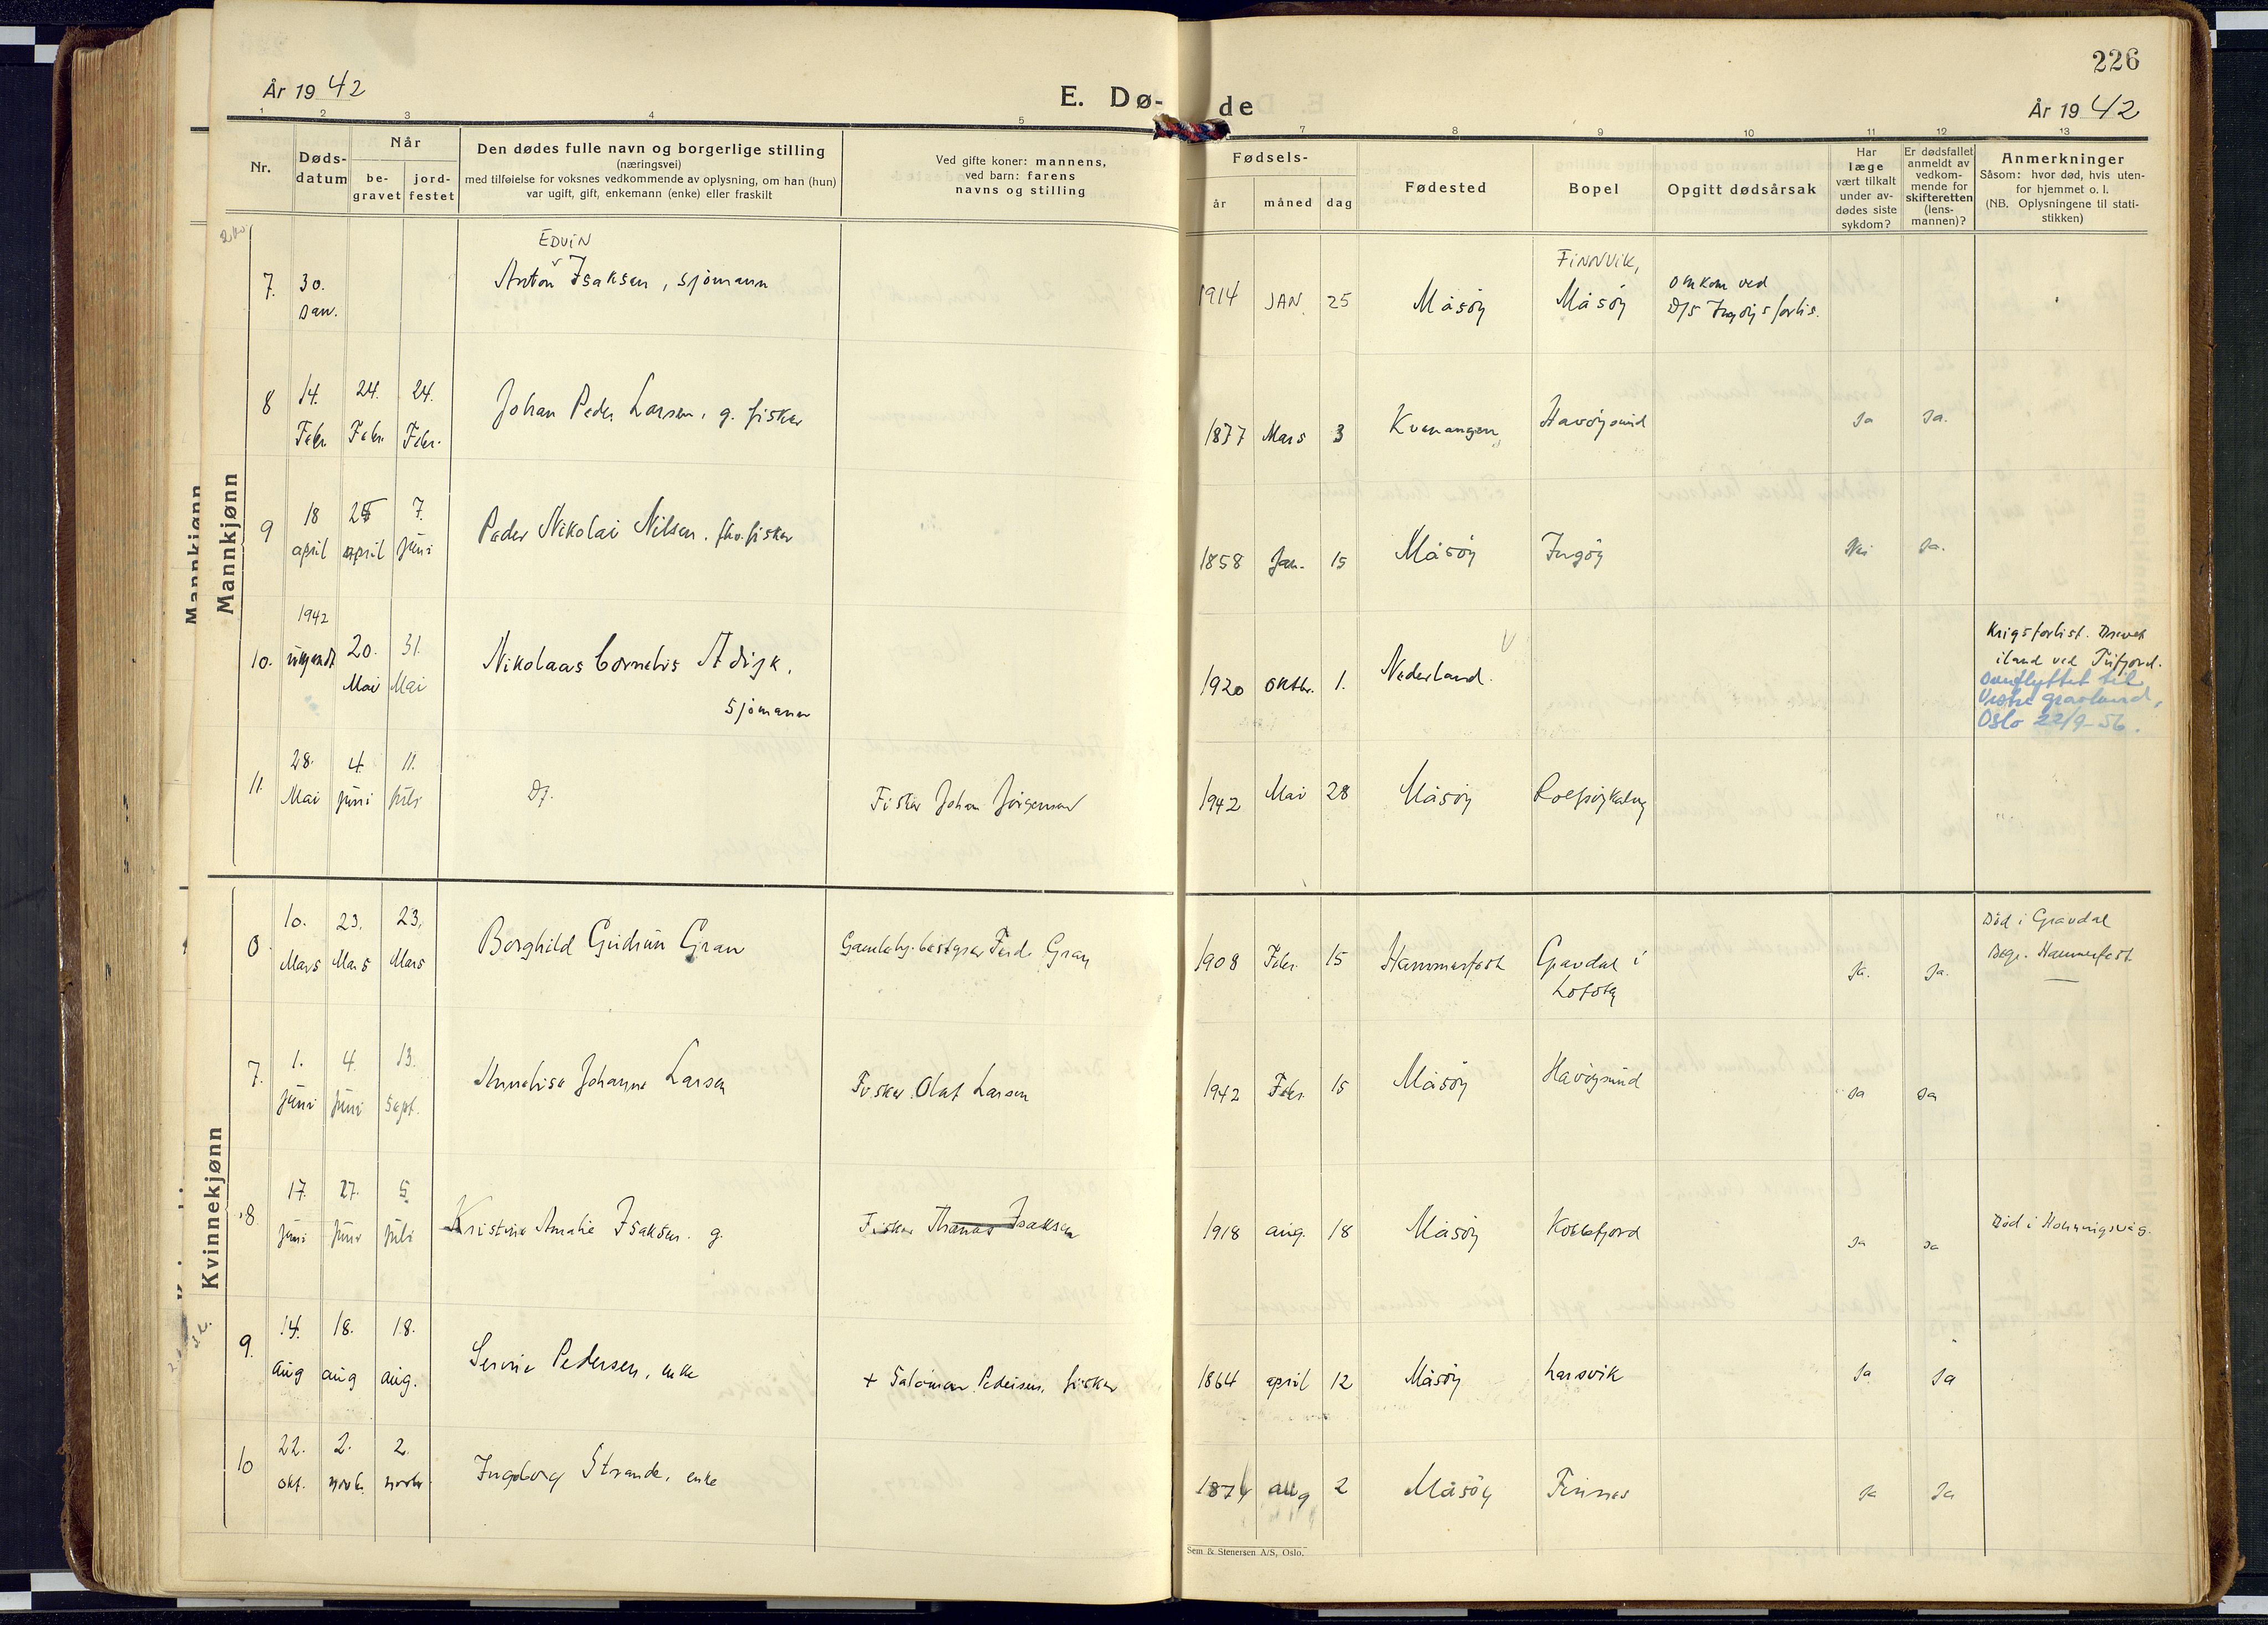 226
År 1942
E. Døde
År 1942
1 2 3 4 5 7 8 9 10 11 12 13
Nr.
Døds-
datum
Når
be-
gravet
jord-
festet
Den dødes fulle navn og borgerlige stilling
(næringsvei)
med tilføielse for voksnes vedkommende av oplysning, om han (hun)
var ugift, gift, enkemann (enke) eller fraskilt
Ved gifte koner: mannens,
ved barn: farens
navns og stilling
Fødsels-
år måned dag
Fødested
Bopel
Opgitt dødsårsak
Har
læge
vært tilkalt
under av-
dødes siste
sykdom?
Er dødsfallet
anmeldt av
vedkom-
mende for
skifteretten
(lens-
mannen)?
Anmerkninger
Såsom: hvor død, hvis uten-
for hjemmet o. l.
(NB. Oplysningene til stati-
stikken)
Mannkjønn
Mannkjønn
EDVIN FINNVIK,
7. 30. Jan. Anton Isaksen, sjømann 1914 JAN. 25 Måsöy Måsöy omkom ved
D/S Ingöys forlis.
8 14. Febr. 24. Febr. 24. Febr. Johan Peder Larsen, g. fisker 1877 Mars 3 Kvenangen Havöysund Ja Ja.
9 18 april 25 april 7. juni Peder Nikolai Nilsen, fhv. fisker 1858 Jan. 15 Måsöy Ingöy Nei Ja.
10. 1942 ukjendt 20. Mai 31. Mai Nikolaas Cornelis A dijk,
sjømann 1920 oktbr. 1. Nederland.
Krigsforlist. Drevet
iland ved Tufjord.
Overflyttet til
Vestre gravlund,
Oslo 22/9-56.
11. 28. Mai 4. juni 11. juli Df. Fisker Johan Jörgensen 1942 Mai 28 Måsöy Rolfsöyhalvøy
Kvinnekjønn
6. 10. Mars 23. Mars 23. Mars Borghild Gudrun Gran Gamlehj.bestyrer Ferd. Gran 1908 Febr. 15 Hammerfest Gravdal i
Lofoten Ja. Ja. Død i Gravdal
Begr. Hammerfest
7. 1. juni 4. juni 13. Sept. Annelise Johanne Larsen Fisker Olaf Larsen 1942 Febr. 15 Måsöy Havöysund Ja Ja
8 17. juni 27. juni 5. juli Kristine Amalie Isaksen. g. Fisker Thomas Isaksen 1918 aug. 18 Måsöy Kobbefjord Ja Ja Død i Honningsvåg.
9. 14. aug 18. aug 18. aug. Serine Pedersen, enke + Salomon Pedersen, fisker 1864 april 12 Måsöy Larsvik Ja Ja
10 22. okt. 2. novbr. 2. novbr. Ingeborg Strande, enke 1874 aug 2 Måsöy Finnes Ja Ja
Sem & Stenersen A/S, Oslo.